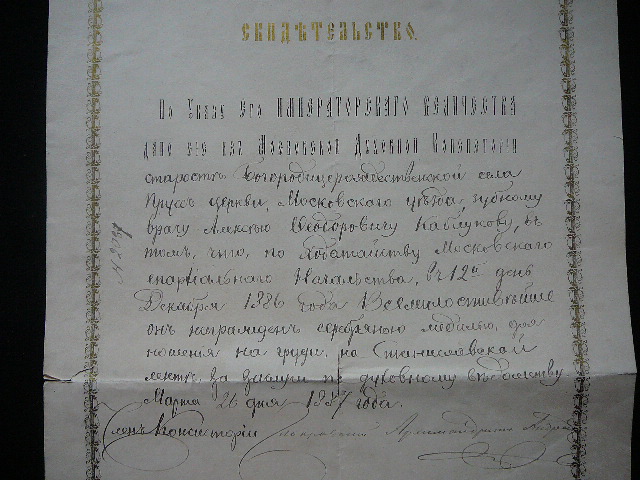 СВИДѢТЕЛЬСТВО.
По Указу Его ИМПЕРАТОРСКАГО ВЕЛИЧЕСТВА
дано сіе изъ Московской Духовной Консисторіи
старостѣ Богородицерождественской села
церкви, Московскаго уѣзда, зубному
врачу Алексѣю Ѳеодоровичу Каблукову, въ
томъ, что, по ходатайству Московскаго
епархіальнаго Начальства, въ 12й день
Декабря 1886 года Всемилостивѣйше
онъ награжденъ серебряною медалью, для
ношенія на груди, на Станиславской
лентѣ, за заслуги по духовному вѣдомству.
Марта 26 дня 1887 года.
Членъ Консисторіи Архимандритъ